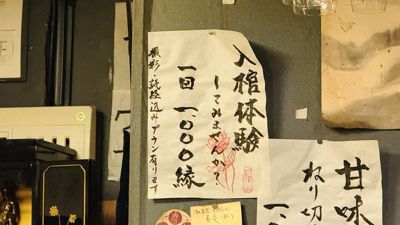 入棺体験
してみませんか?
一回 一,〇〇〇縁
撮影・読経込みプラン有ります
甘味
ねり切